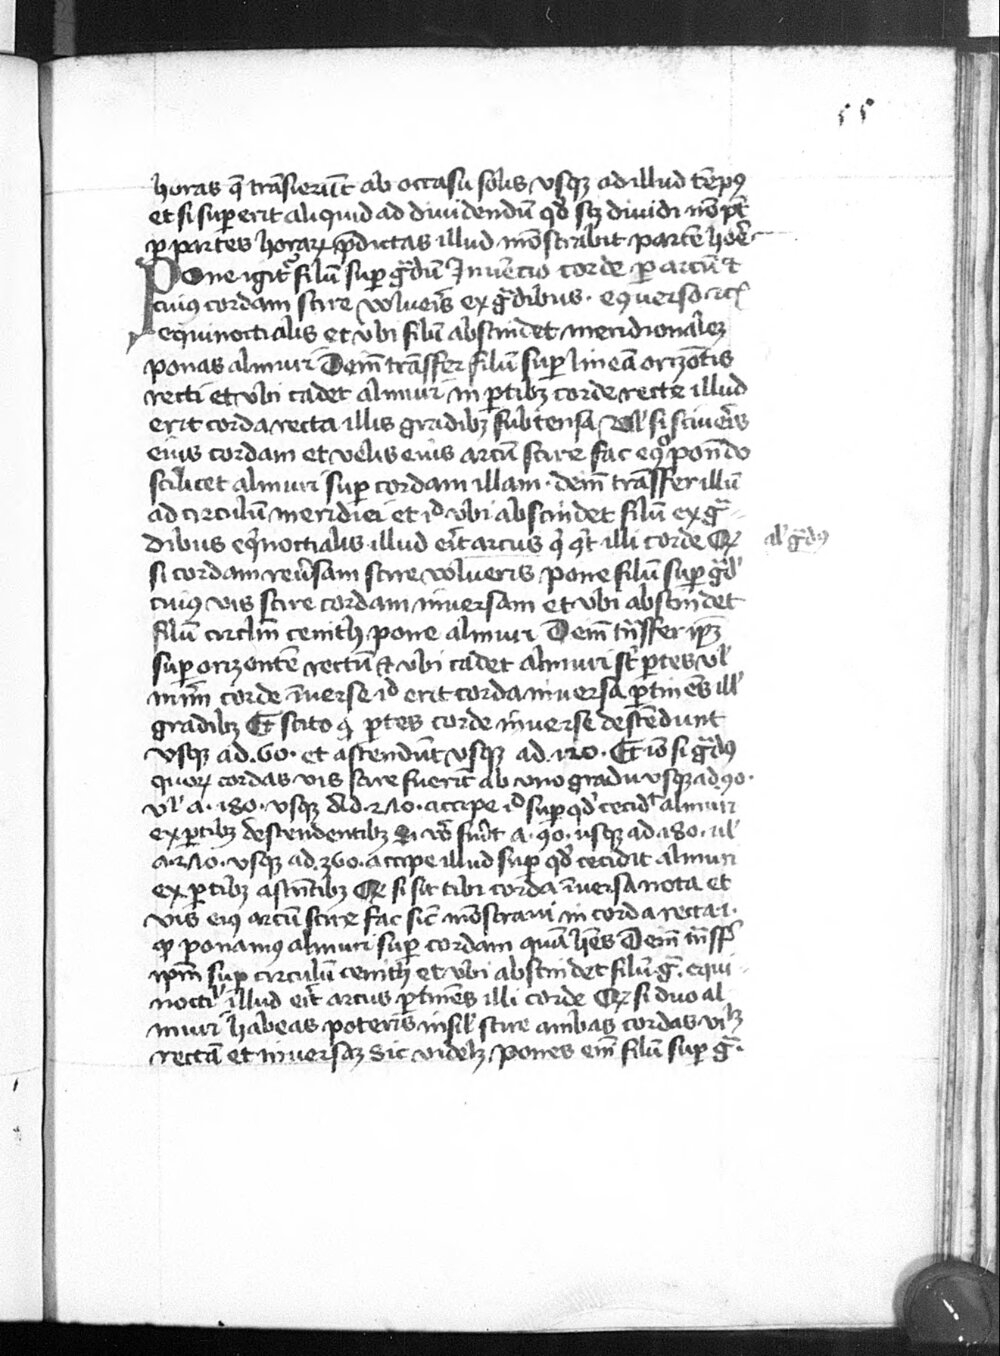 55
horas q̄ trāsierūt ab occasu solis vsqꝫ ad illud tēpꝰ
et si superit aliquid ad dividendū qd̓ sꝫ dividi nō pt̄
ꝑ partes horaꝝ p̄dictas illud mōstrabit partē horē
Pone igit᷑ filū suꝑ gͣdū Inuēcio corde ꝑ arcū ⁊
cuiꝰ cordam scire volueris ex gͣdibus · eqverso
equinoctialis et vbi filū abscindet meridionaleꝫ
ponas almuri Deīn trāsffer filū suꝑ lineā orizōtis
recti et vbi cadet almuri in ꝑtibꝫ corde recte illud
erit corda recta illis gradibꝫ subtensa Vl̓ si sciueris
eius cordam et velis eius arcū scire fac eqͦ ponēdo
scilicet almuri suꝑ cordam illam · deīn trāsffer illū
ad circulum meridiei et id̓ vbi abscindet filū ex gͣ
dibus eq̇noctialis illud erit arcus q̇ ꝯt illi corde Qꝛ
al̓ gͣdꝰ
si cordam reūsam scire volueris pone filū suꝑ gͣd̓
cuiꝰ vis scire cordam inuersam et vbi abscindet
filū circlm̄ cenith pone almuri Deīn trᷓsffer ip̄ꝫ
suꝑ orizontē rectū ⁊ vbi cadet almuri sꝑ ꝑtes vl̓
mīm̄ corde īuerse id̓ erit corda inuersa ꝑtinēs ill̓
gradibꝫ Et scito qͥ ꝑtes corde inuerse descēdunt
vsqꝫ ad · 60 · et ascendūt vsqꝫ ad · 120 · Et iō si gͣdꝰ
quoꝝ cordas vis scire fuerit ab vno gradu vsqꝫ ad · 90 ·
vl̓ a · 180 · vsqꝫ ad · 270 · accipe id̓ suꝑ qd̓ cecidit almuri
ex ꝑtibꝫ descendentibꝫ Si vͦ fuerit a · 90 · usqꝫ ad 180 · ul̓
a · 270 · vsqꝫ ad · 360 · accipe illud suꝑ qd̓ cecidit almuri
ex ꝑtibꝫ ascēntibꝫ Qꝛ si sit tibi corda īuersa nota et
vis eiꝰ arcū scire fac sic̄ mōstrani in corda recta · i ·
qͥ ponamꝰ almuri suꝑ cordam quā hēs Deīn trᷓsff̓
ip̄m suꝑ circulū cenith et vbi abscindet filū · gͣ · equi
noctil̓ illud erit arcus ꝑtinēs illi corde Qꝛ si duo al
muri habeas poteris insil̓ scire ambas cordas vilꝫ
rectā et inuersaꝫ Sic videlꝫ pones eīm filū suꝑ gͣ ·